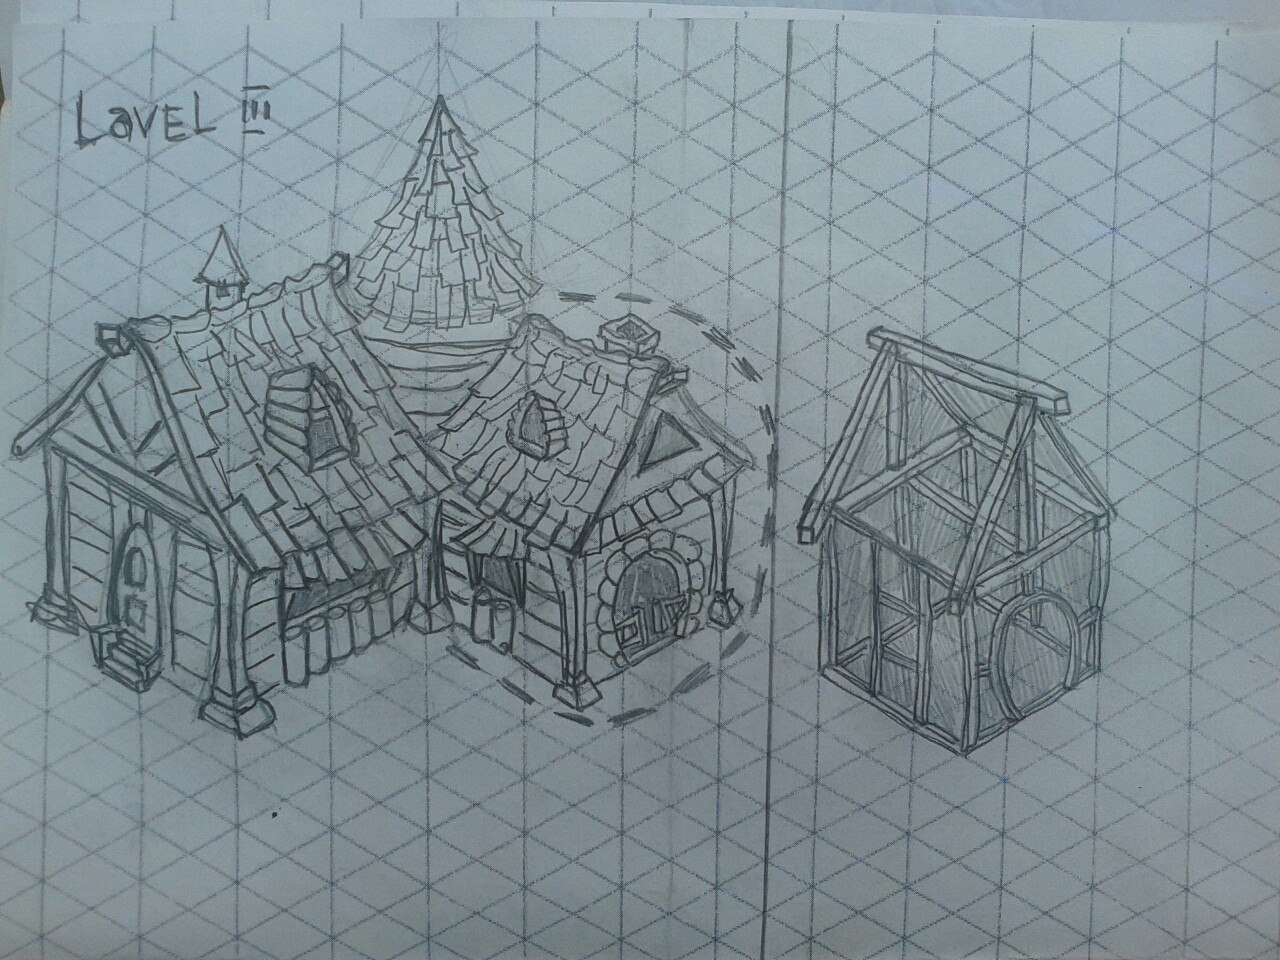 LaVEL III